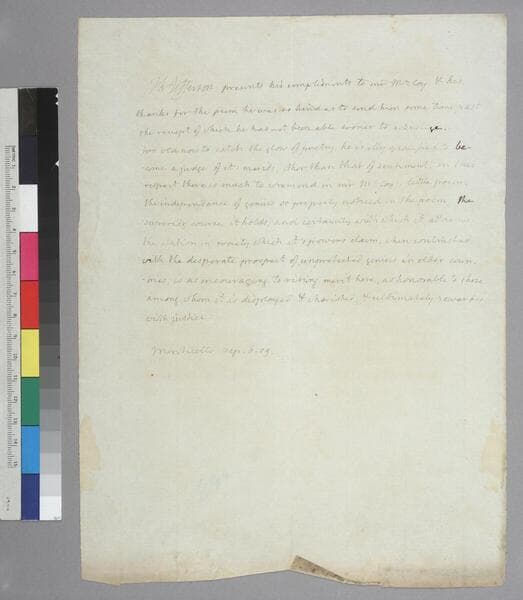 Th Jefferson presents his compliments to mr McCoy & his
thanks for the poem he was so kind as to send him some time past
the receipt of which he has not been able sooner to acknolege.
too old now to catch the glow of poetry, he is also to be-
come a judge of it's merits, other than that of sentiment. in this
respect there is much to commend in mr McCoy's little poem.
the independance of genius so properly noticed in the poem the
course it holds, and certainty with which it attains
the station in society which it's powers claim, when contrasted
with the desperate prospect of unprotected genius in older coun-
tries, is as encouraging to rising merit here, as honorable to those
among whom it is displayed & cherished, & ultimately rewarded
with justice.
Monticello Sep. 09.